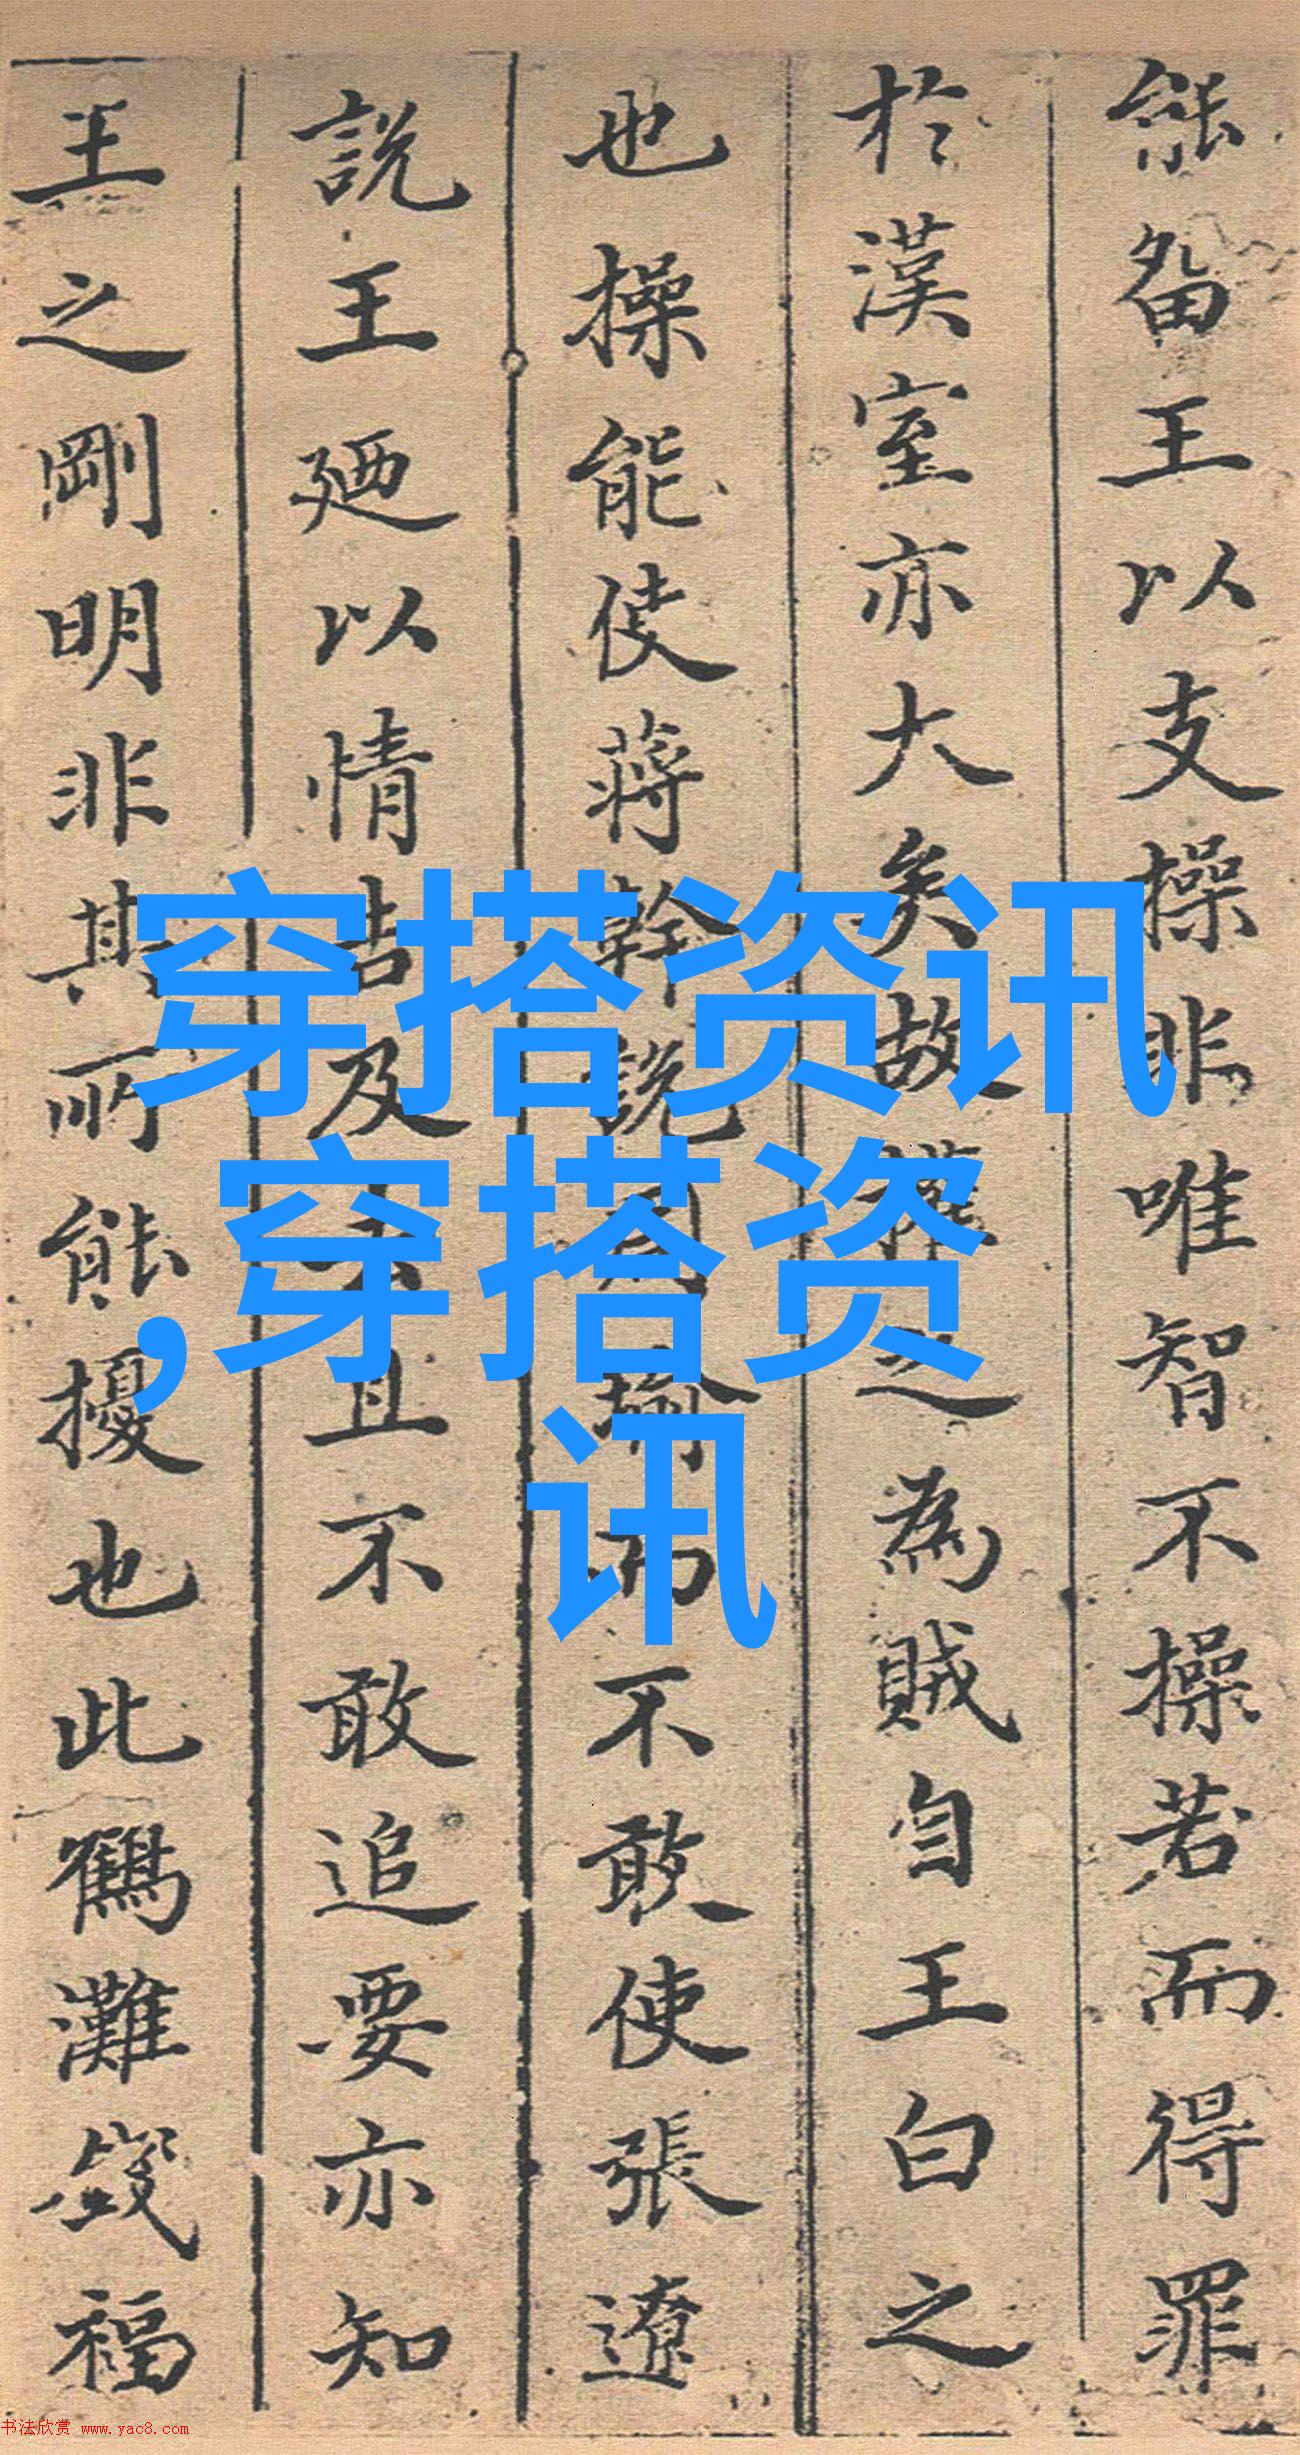 能畱王以支操非唯智不操若而得罪
於漢室亦大矣故權之為賊自王白之
也操能使蔣幹說周瑜而不敢使張遼
說王廼以情告及去且不敢追要亦知
王之剛明非其所能擾也此鶴灘錢福
穿搭资讯
,穿搭资
讯
书法欣赏 www.yac8.com